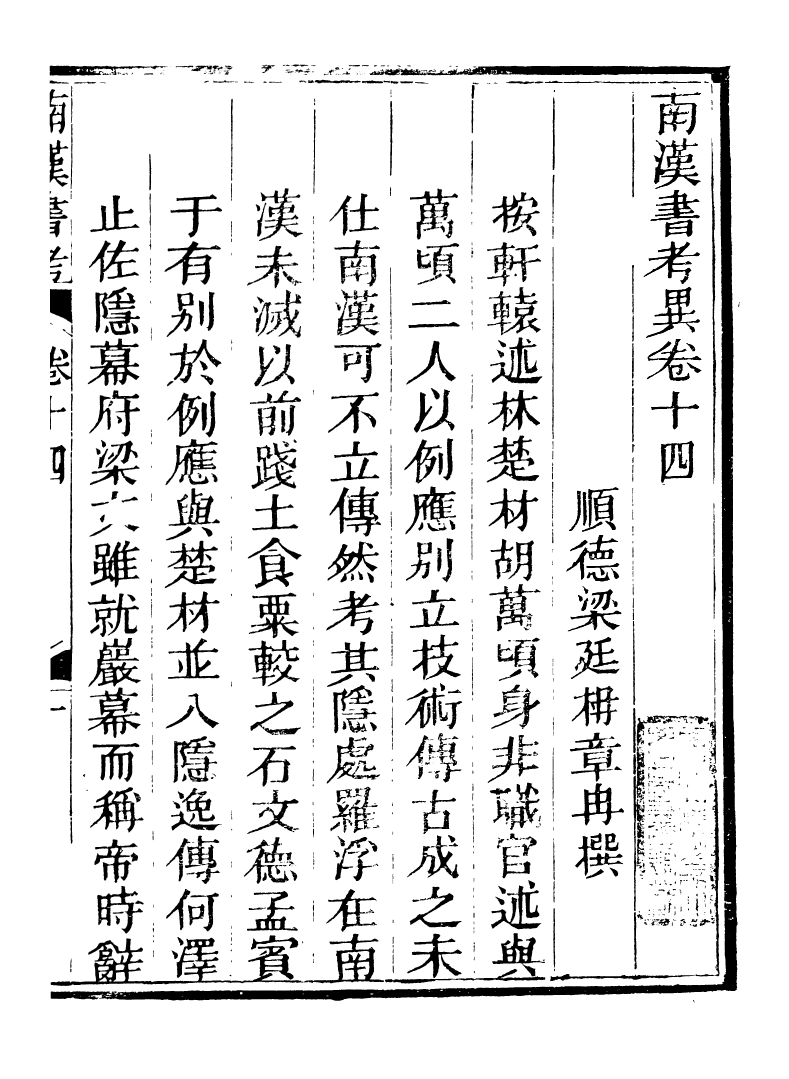 南漢書考異卷十四
順德梁廷枏章冉撰
按軒轅述林楚材胡萬頃身非職官述與
萬頃二人以例應別立技術傳古成之未
仕南漢可不立傳然考其隱處羅浮在南
漢未滅以前踐土食粟較之石文德孟賓
于有別於例應與楚材並入隱逸傳何澤
止佐隱幕府梁六雖就巖幕而稱帝時辭
南漢書考
卷十四
一